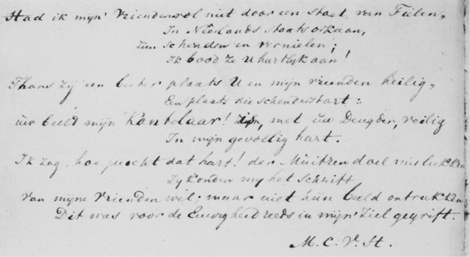 Had ik mijn' Vriendenrol niet door een staat van Fielen,
In Neerlands staats orkaan,
zien schenden en vernielen;
Ik bood ze U hartlijk aan!
Thans zij een beter plaats U en mijn vrienden heilig,
Een plaats die schenders tart:
uw beeld mijn Kantelaar! zij, met uw Deugden, veilig
In mijn gevoelig hart.
Ik zag, hoe zucht dat hart! der Muitren doel
Zij konden my het schrift
van myne Vrienden wel; maar niet hun beeld ontrukken
Dit was voor de Eeuwigheid reeds in mijn' Ziel gegrift.
M. C. V. H.